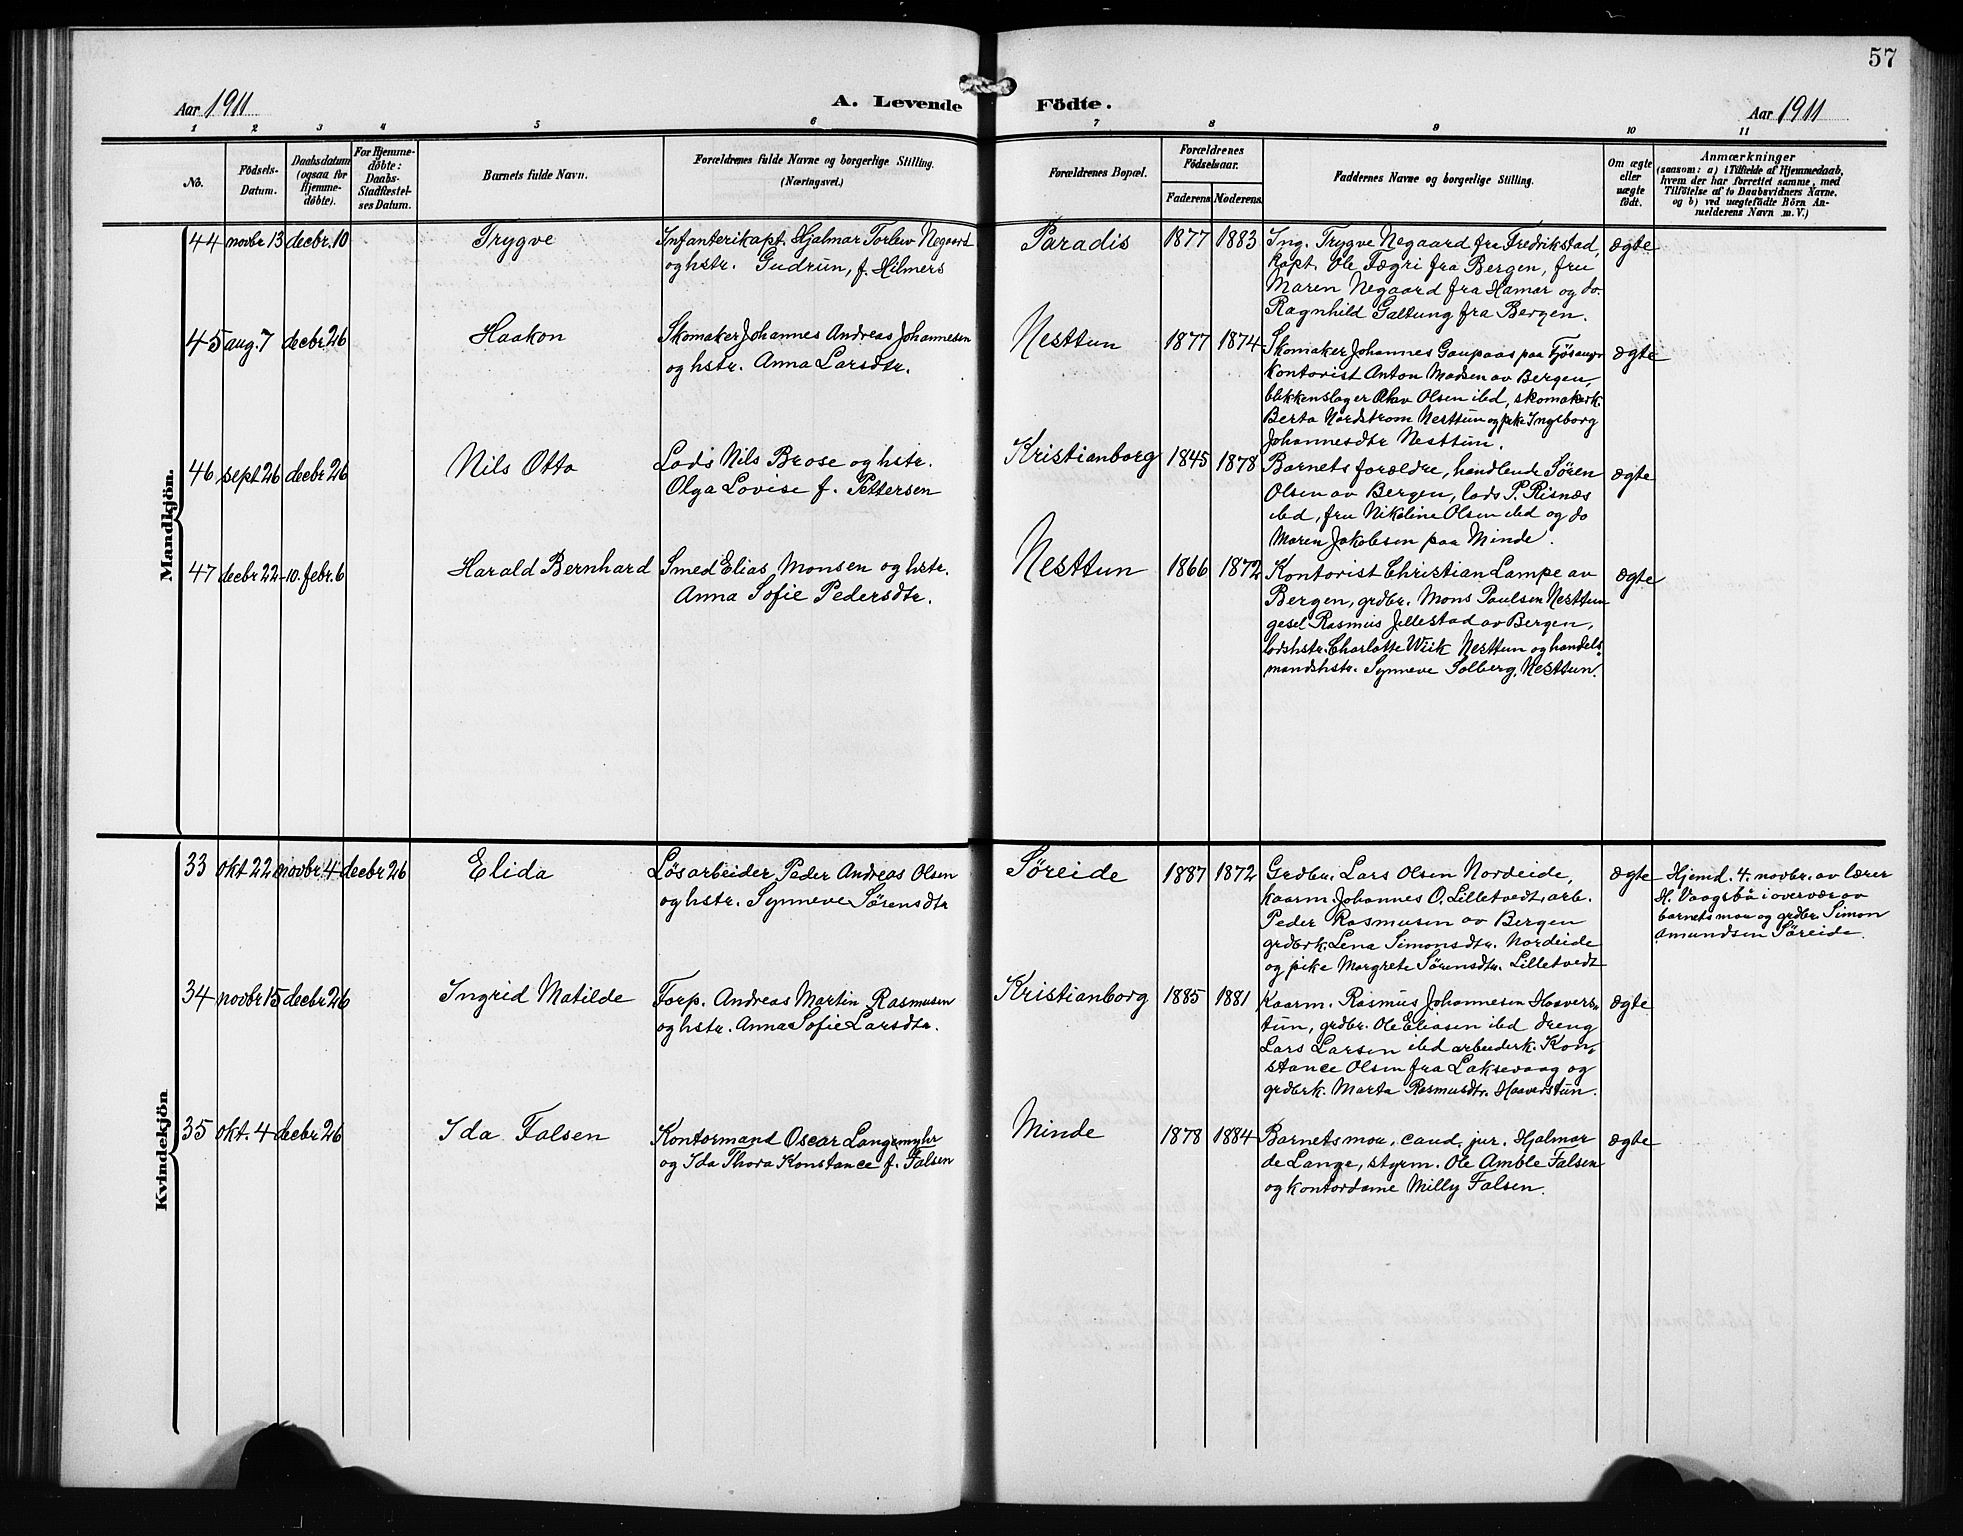 57
Aar 1911
A. Levende Födte.
Aar 1911
1 2 3 4 5 6 7 8 9 10 11
No.
Födsels-
Datum.
Daabsdatum
(ogsaa for
Hjemme-
døbte).
For Hjemme-
døbte:
Daabs-
Stadfæstel-
ses Datum.
Barnets fulde Navn.
Forældrenes fulde Navne og borgerlige Stilling.
(Næringsvei.)
Forældrenes Bopæl.
Forældrenes
Födselsaar.
Faderens
Moderens
Faddernes Navne og borgerlige Stilling.
Om ægte
eller
uægte
født.
Anmærkninger
(saasom: a) i Tilfælde af Hjemmedaab,
hvem der har forrettet samme, med
Tilföielse af to Daabsvidners Navne.
og b) ved uægtefödte Börn An-
melderens Navn m. V.)
Mandkjön.
44 novbr 13 decbr. 10
Trygve
Infanterikapt. Hjalmar Torlew Negaard
og hstr. Gudrun, f. Hilmers
Paradis
1877 1883
Ing. Trygve Negaard fra Fredrikstad,
kapt. Ole Fægri fra Bergen, fru
Maren Negaard fra Hamar og do.
Ragnhild Galtung fra Bergen.
ægte
45 aug. 7 decbr 26
Haakon
Skomaker Johannes Andreas Johannesen
og hstr. Anna Larsdtr.
Nesttun
1877 1874
Skomaker Johannes Gaupaas paa Fjøsanger
kontorist Anton Madsen av Bergen,
blikkenslager Olav Olsen ibd, skomakerk.
Berta Nordstrom Nesttun og pike Ingeborg
Johannesdtr Nesttun.
ægte
46 sept 26 decbr 26
Nils Otto
Lods Nils Brose og hstr.
Olga Lovise f. Pettersen
Kristianborg
1845 1878
Barnets forældre, handlende Søren
Olsen av Bergen, lods P. Risnæs
ibd, fru Nikoline Olsen ibd og do
Maren Jakobsen paa Minde.
ægte
47 decbr 22 10. febr. 6
Harald Bernhard
Smed Elias Monsen og hstr.
Anna Sofie Pedersdtr.
Nesttun
1866 1872
Kontorist Christian Lampe av
Bergen, grdbr. Mons Paulsen Nesttun
gesel Rasmus Jellestad av Bergen,
lodshstr. Charlotte Wiik Nesttun og handels-
mandshstr. Synneve Solberg, Nesttun.
ægte
Kvindekjön
33 okt 22 novbr 4 decbr 26
Elida
Løsarbeider Peder Andreas Olsen
og hstr. Synneve Sørensdtr
Søreide
1887 1872
Grdbr. Lars Olsen Nordeide,
kaarm. Johannes O. Lilletvedt, arb.
Peder Rasmusen av Bergen
grdbrk. Lena Simonsdtr. Nordeide
og pike Margrete Sørensdtr. Lilletvedt
ægte
Hjemd. 4. novbr. av lærer
H. Vaagsbø i overvær av
barnets mor og grdbr. Simon
Amundsen Søreide.
34 novbr 15 decbr 26
Ingrid Matilde
Forp. Andreas Martin Rasmusen
og hstr. Anna Sofie Larsdtr.
Kristianborg
1885 1881
kaarm. Rasmus Johannesen Haavers-
tun, grdbr. Ole Eliasen ibd dreng
Lars Larsen ibd arbeiderk. Kon-
stance Olsen fra Laksevaag og
grdbrk. Marta Rasmusdtr. Haaverstun.
ægte
35 okt. 4 decbr 26
Ida Falsen
Kontormand Oscar Langemyhr
og Ida Thora Konstance f. Falsen
Minde
1878 1884
Barnets mor, cand. jur. Hjalmar
de Lange, styrm. Ole Amble Falsen
og kontordame Milly Falsen.
ægte